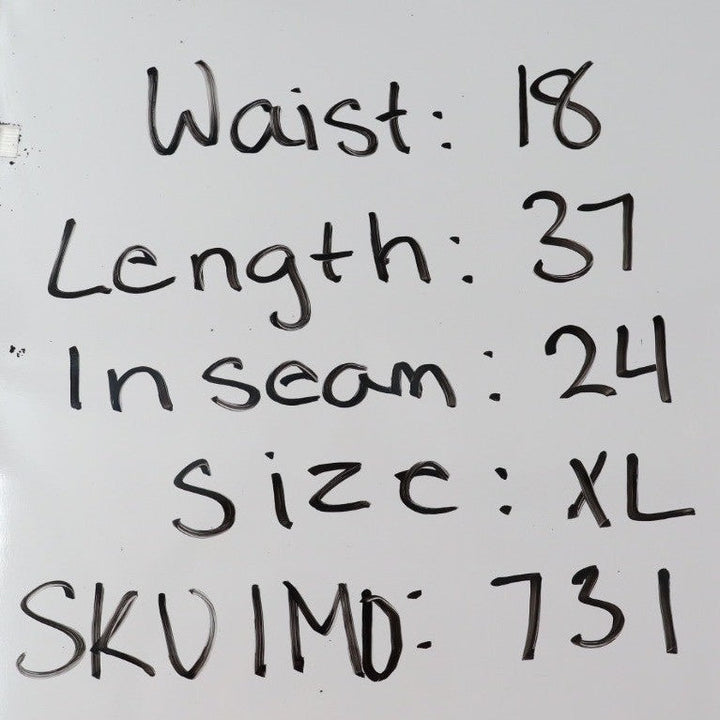 Waist: 18
Length: 37
Inseam: 24
Size: XL
SKU IMD: 731